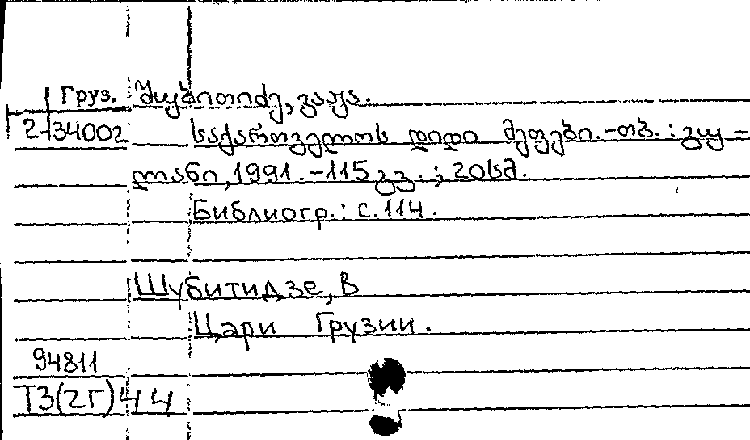 Груз. შუბითიძე, ვაჟა.
2-34002 საქართველოს დიდი მეფეები.-თბ.: გუ-
ლანი, 1991.-115 გვ.; 20სმ.
Библиогр.: с.114.
Шубитидзе, В
Цари Грузии.
94811
Т3(2Г)44